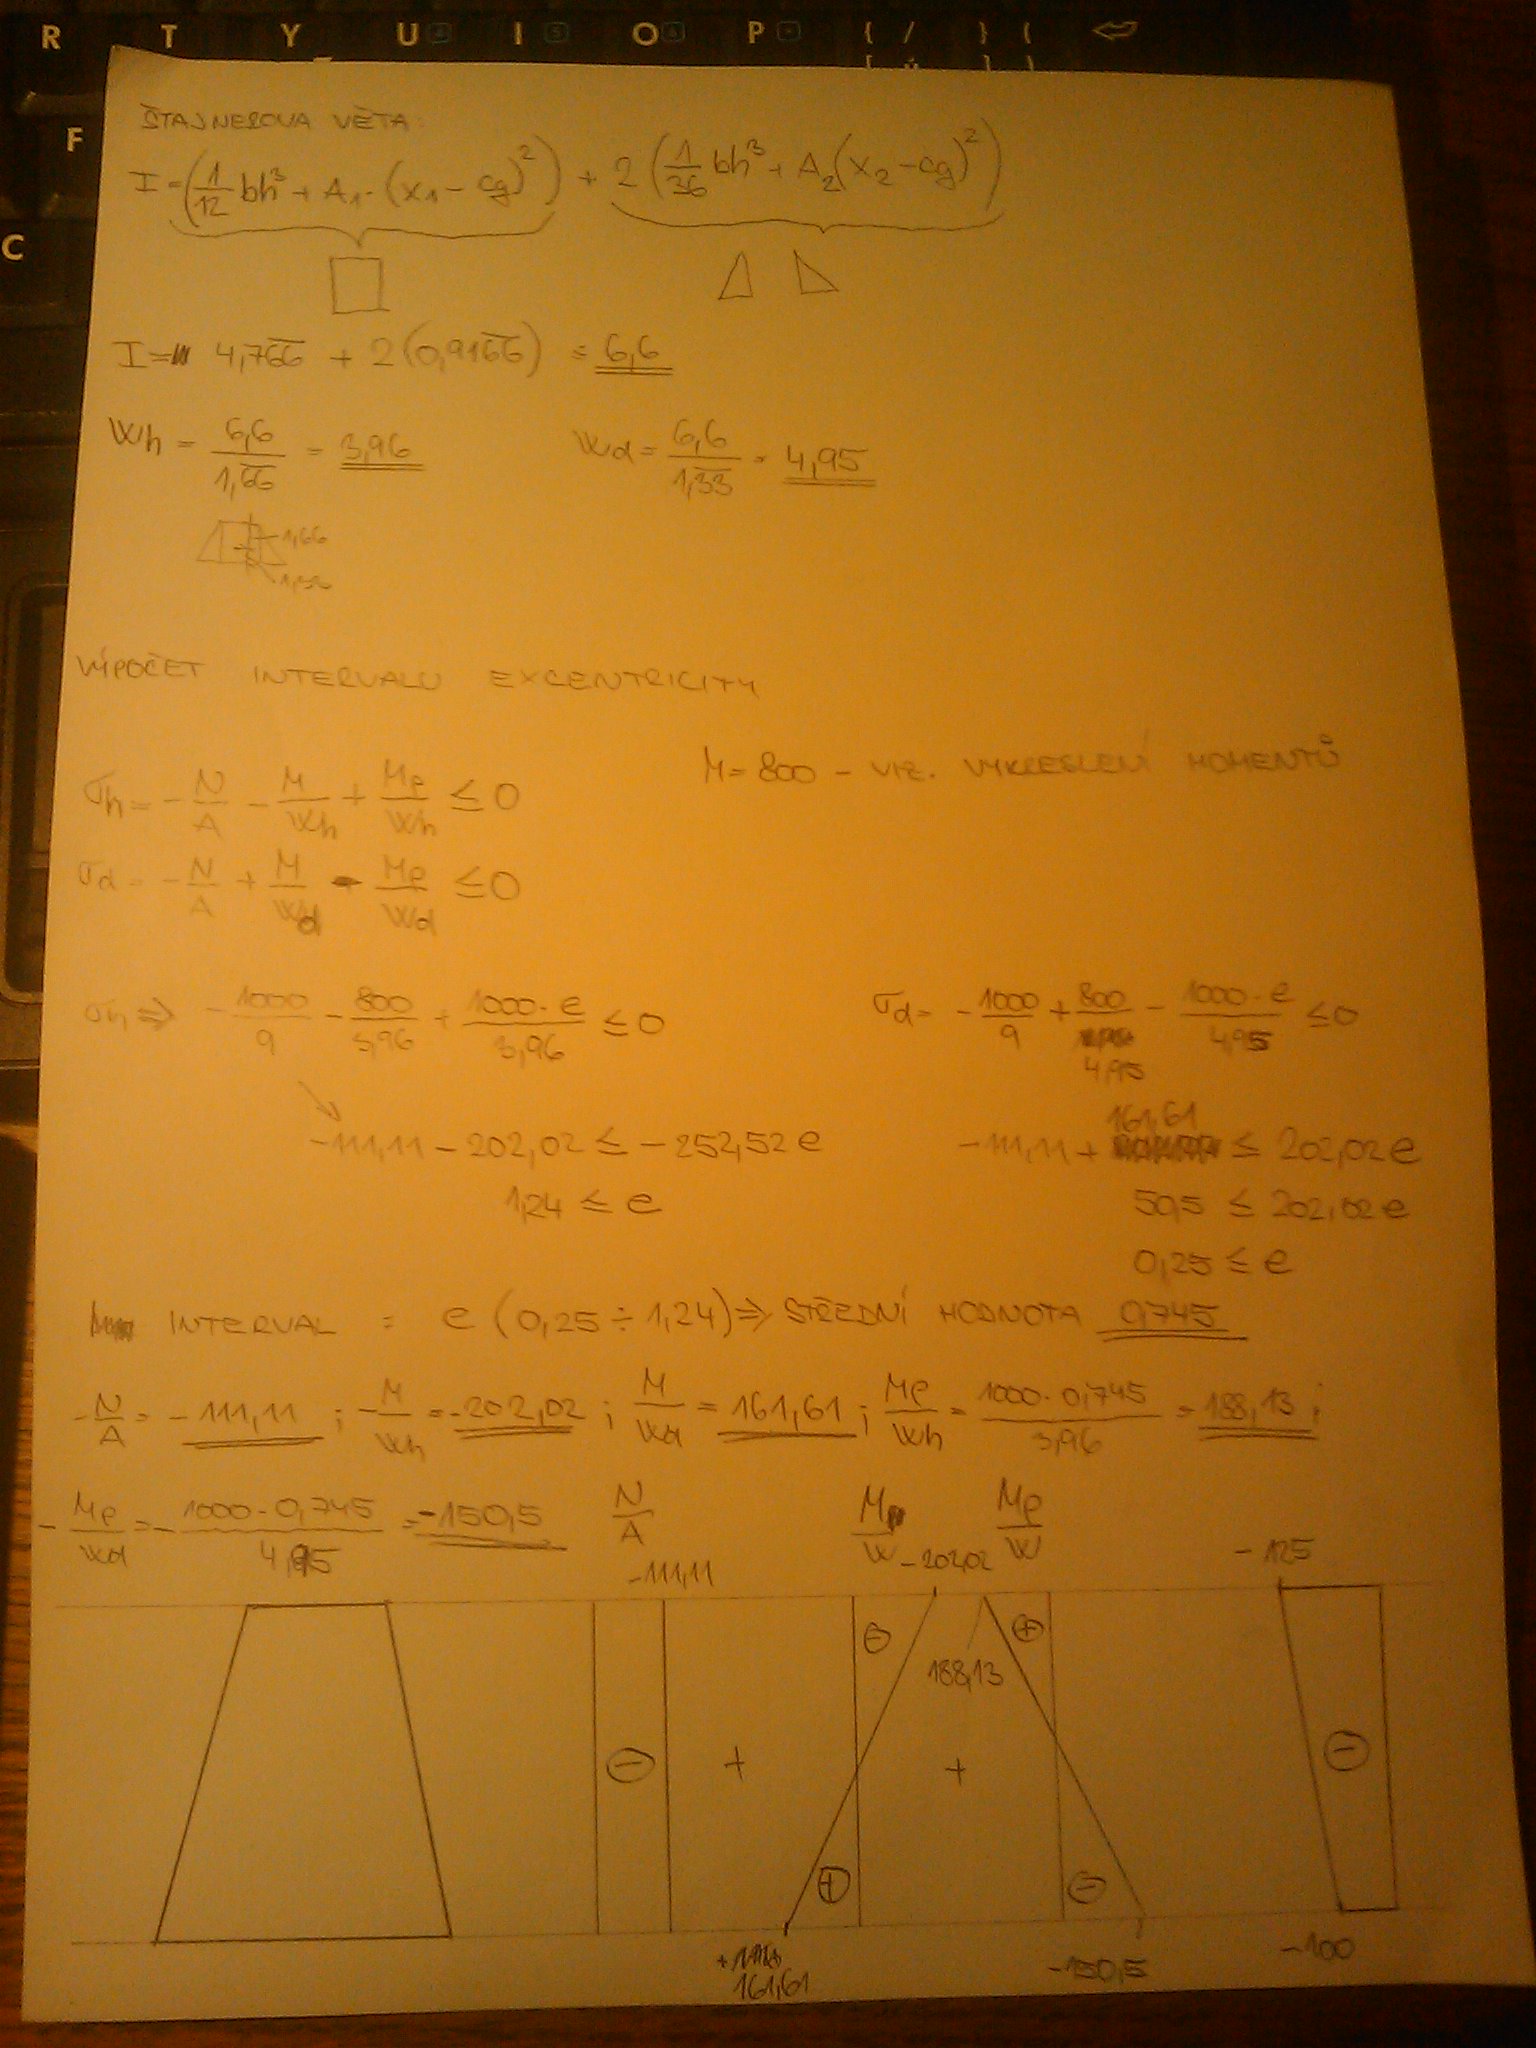 R T Y U I O P { / } (
[ ú ] )
F
C
ŠTAJNEROVA VĚTA:
I = (1/12 bh³ + A₁ · (x₁ - cg)²) + 2 (1/36 bh³ + A₂ (x₂ - cg)²)
I = 4,766 + 2 (0,9166) = 6,6
Wh = 6,6/1,66 = 3,96 Wd = 6,6/1,33 = 4,95
1,66
VÝPOČET INTERVALU EXCENTRICITY
M = 800 - VIZ. VYKRESLENÍ MOMENTŮ
σh = - N/A - M/Wh + Mp/Wh ≤ 0
σd = - N/A + M/Wd - Mp/Wd ≤ 0
σh ⇒ - 1000/9 - 800/3,96 + 1000·e/3,96 ≤ 0 σd = - 1000/9 + 800/4,95 - 1000·e/4,95 ≤ 0
-111,11 - 202,02 ≤ - 252,52 e -111,11 + 161,61 ≤ 202,02 e
1,24 ≤ e 50,5 ≤ 202,02 e
0,25 ≤ e
INTERVAL : e (0,25 ÷ 1,24) ⇒ STŘEDNÍ HODNOTA 0,745
- N/A = - 111,11 ; - M/Wh = - 202,02 ; M/Wd = 161,61 ; Mp/Wh = 1000·0,745/3,96 = 188,13 ;
- Mp/Wd = - 1000·0,745/4,95 = -150,5 N/A M/W Mp/W
-111,11 -202,02 -125
⊖ ⊕
188,13
⊖ + + ⊖
⊕ ⊖
+ 161,61 -150,5 -100